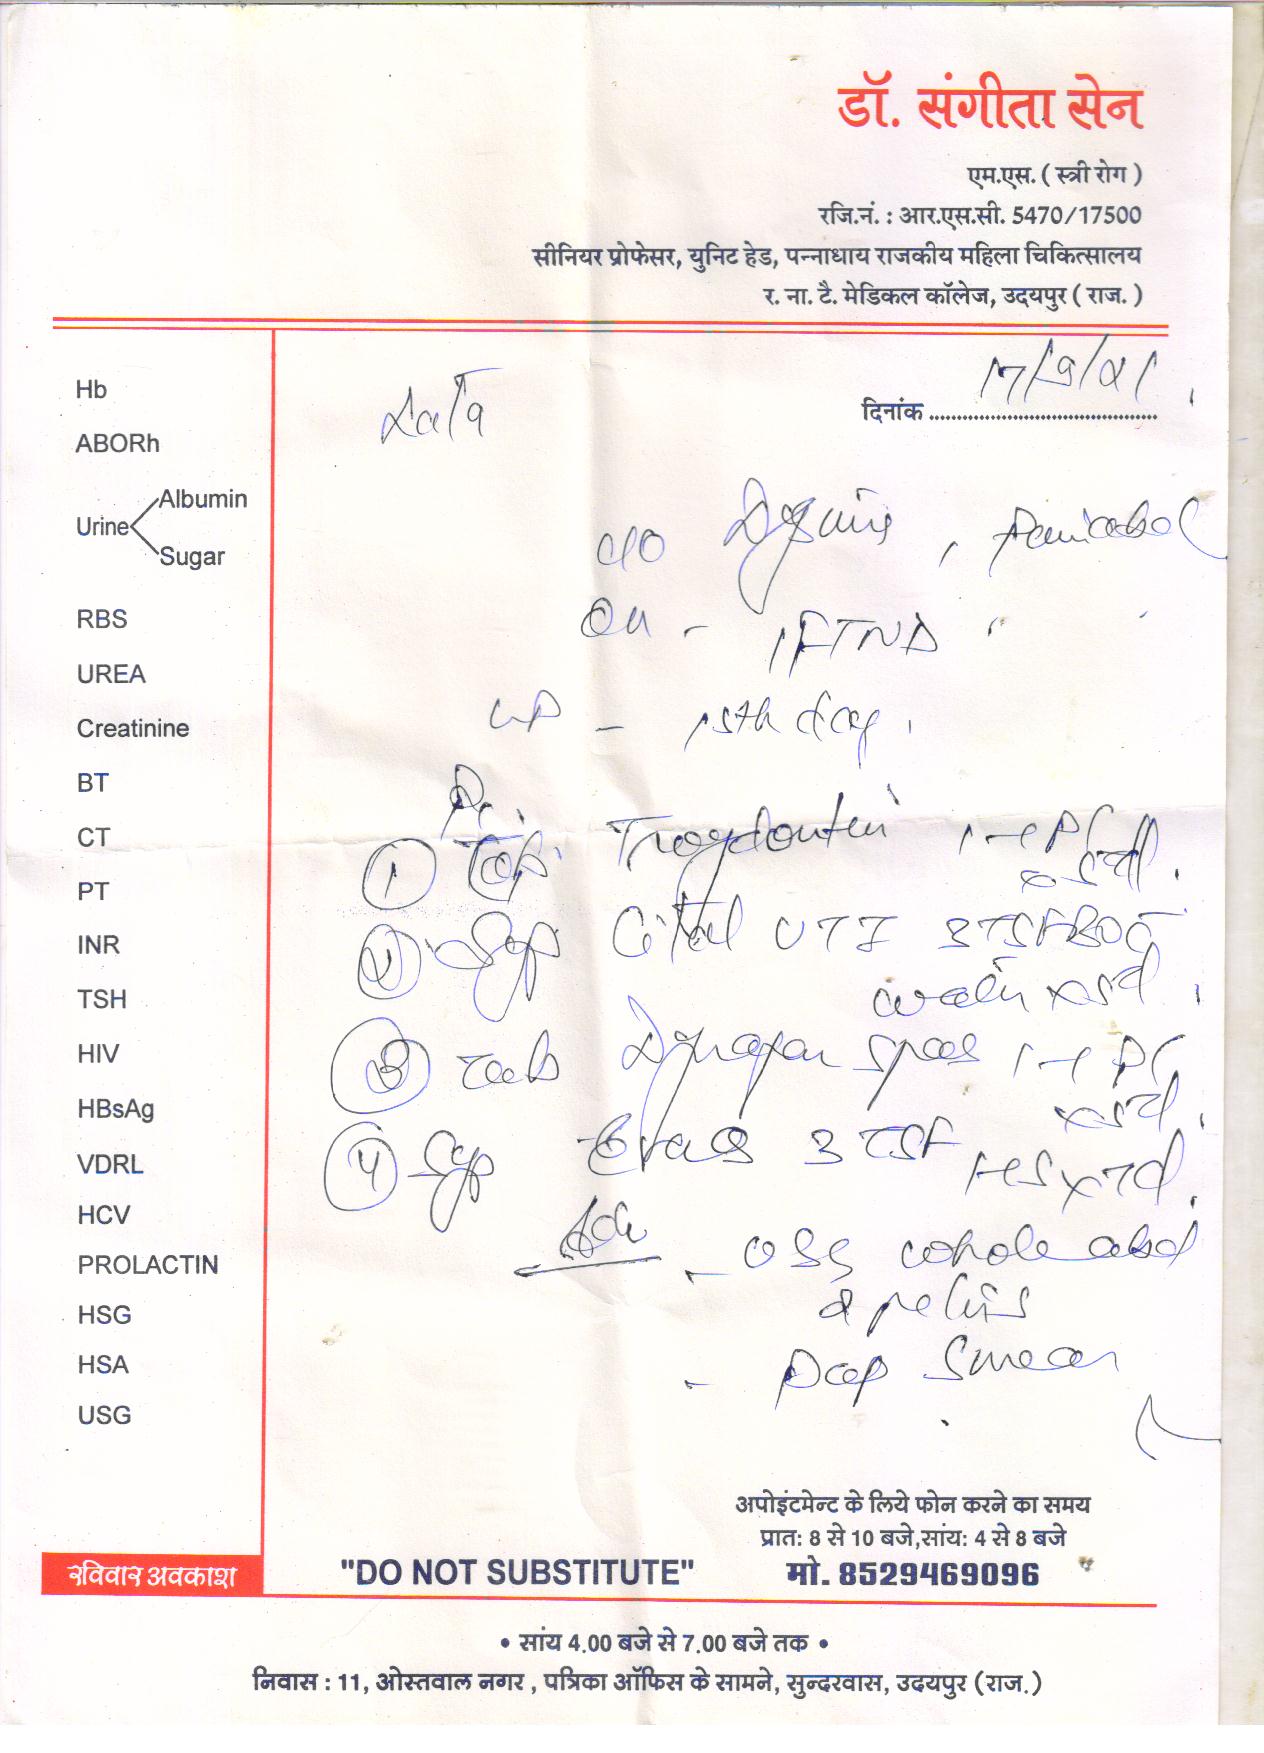 डॉ. संगीता सेन
एम.एस. ( स्त्री रोग )
रजि.नं. : आर.एस.सी. 5470/17500
सीनियर प्रोफेसर, युनिट हेड, पन्नाधाय राजकीय महिला चिकित्सालय
र. ना. टै. मेडिकल कॉलेज, उदयपुर ( राज. )
दिनांक 17/9/21
Lata
Hb
ABORh
Urine Albumin
Sugar
RBS
UREA
Creatinine
BT
CT
PT
INR
TSH
HIV
HBsAg
VDRL
HCV
PROLACTIN
HSG
HSA
USG
c/o
OH - 1FTND
LMP - 15th day
Rx
1
2 Syp Cital UTI 3TSF BD c
water x 5d
3 Tab spas
x 5d
4 Syp 3 TSF HS x 7d
Adv - USG whole abd
& pelvis
- Pap Smear
अपोइंटमेन्ट के लिये फोन करने का समय
प्रातः 8 से 10 बजे,सांयः 4 से 8 बजे
मो. 8529469096
रविवार अवकाश
"DO NOT SUBSTITUTE"
• सांय 4.00 बजे से 7.00 बजे तक •
निवास : 11, ओस्तवाल नगर , पत्रिका ऑफिस के सामने, सुन्दरवास, उदयपुर (राज.)